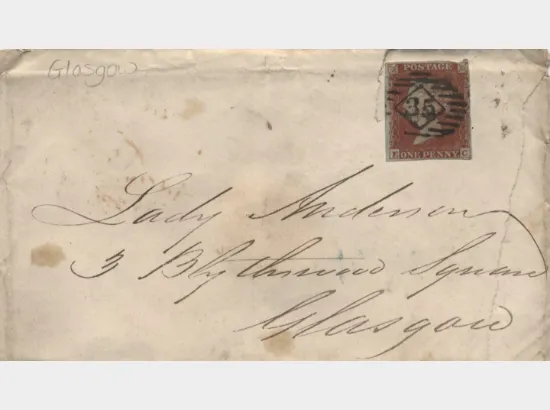 Glasgow
POSTAGE
35
ONE PENNY
Lady Anderson
3 Blythswood Square
Glasgow